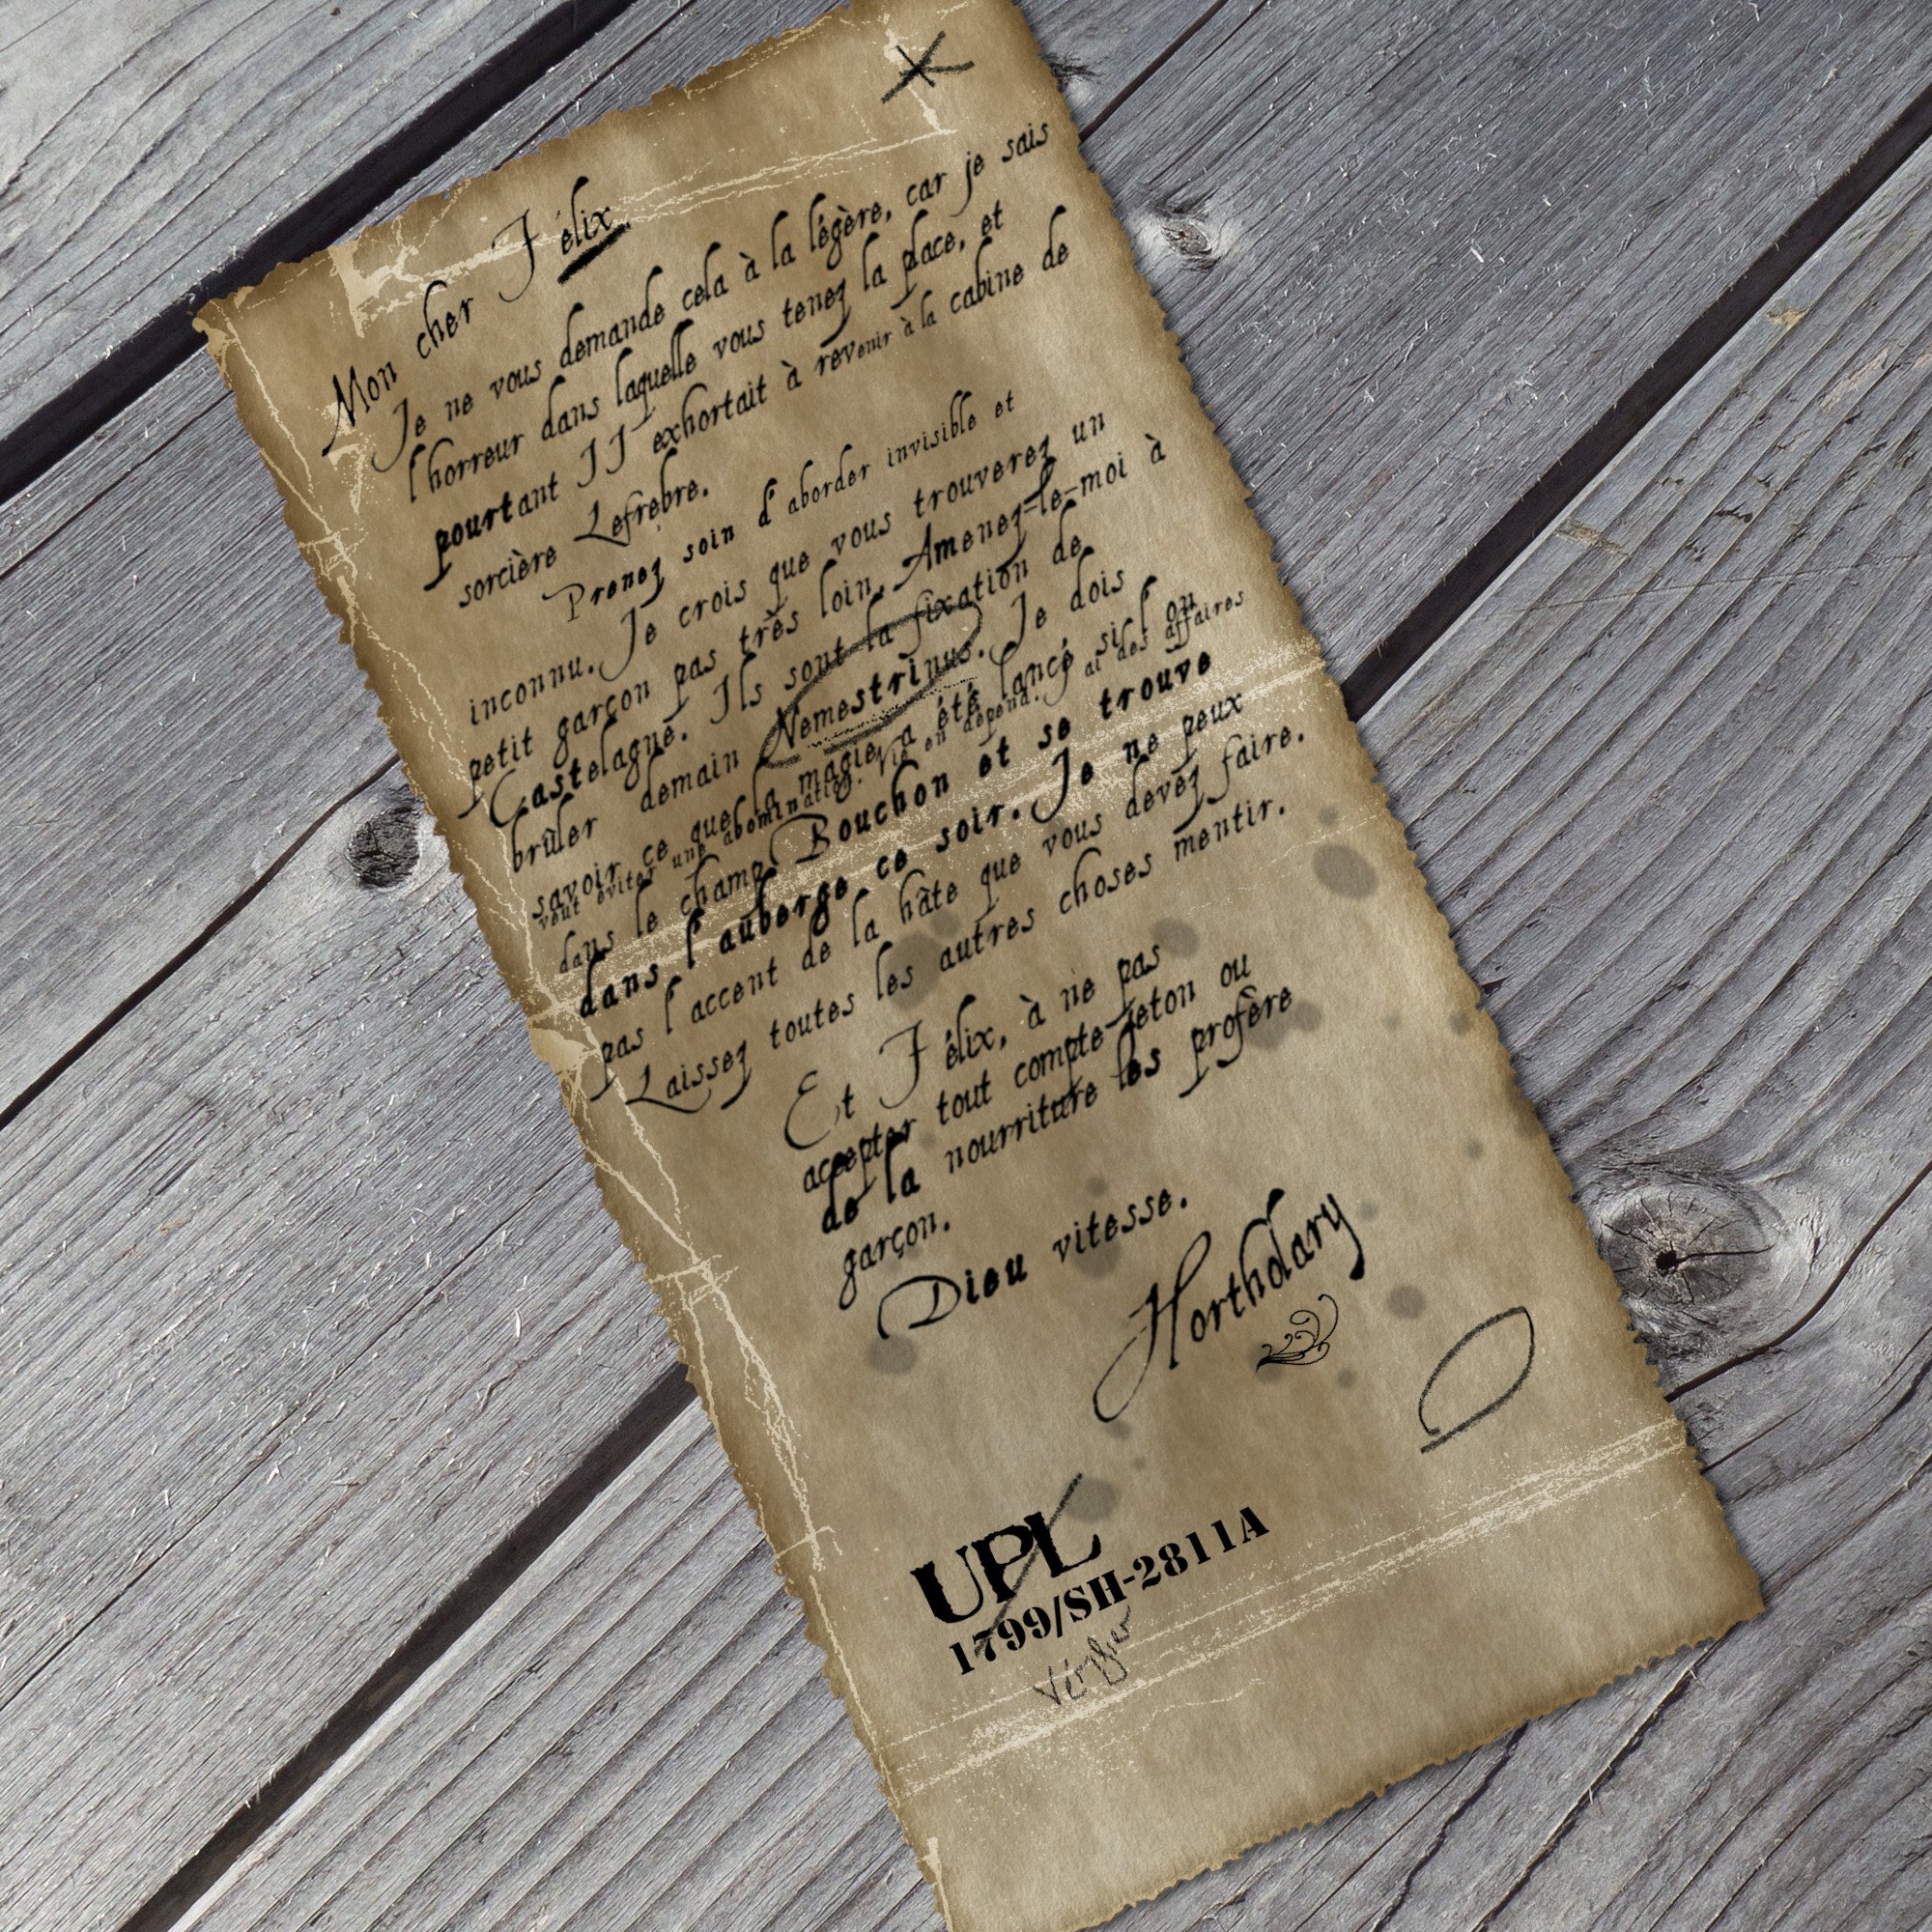 Mon cher Félix,
Je ne vous demande cela à la légère, car je sais
l'horreur dans laquelle vous tenez la place, et
pourtant II exhortait à revenir à la cabine de
sorcière Lefrebre.
Prenez soin d'aborder invisible et
inconnu. Je crois que vous trouverez un
petit garçon pas très loin. Amenez-le-moi à
Castelagne. Ils sont la fixation de
brûler demain Nemestrinus. Je dois
savoir ce que la magie a été lancé si l'on
veut éviter une abomination. Vie en dépend. J'ai des affaires
dans le champ Bouchon et se trouve
dans l'auberge ce soir. Je ne peux
pas l'accent de la hâte que vous devez faire.
Laissez toutes les autres choses mentir.
Et Félix, à ne pas
accepter tout compte jeton ou
de la nourriture les profère
garçon.
Dieu vitesse.
Hortholary
UPL
1799/SH-2811A